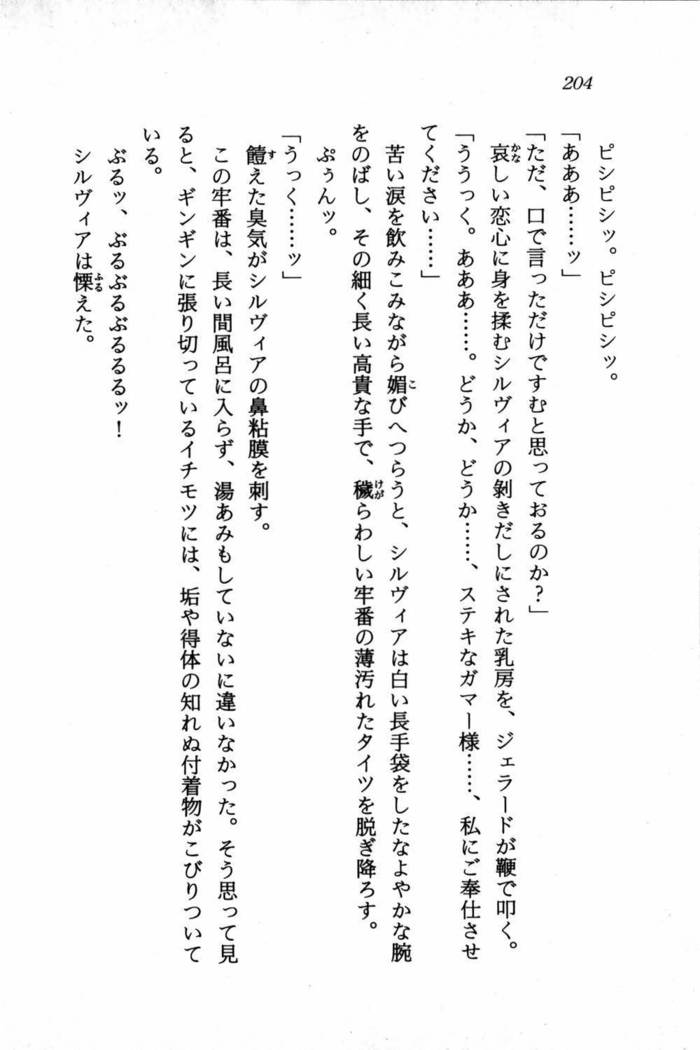 204
ピシピシッ。ピシピシッ。
「あああ……ッ」
「ただ、口で言っただけですむと思っておるのか?」
哀しい恋心に身を揉むシルヴィアの剝きだしにされた乳房を、ジェラードが鞭で叩く。
「ううっく。あああ……。どうか、どうか……、ステキなガマー様……、私にご奉仕させ
てください……」
苦い涙を飲みこみながら媚びへつらうと、シルヴィアは白い長手袋をしたなよやかな腕
をのばし、その細く長い高貴な手で、穢らわしい牢番の薄汚れたタイツを脱ぎ降ろす。
ぷぅんッ。
「うっく……ッ」
饐えた臭気がシルヴィアの鼻粘膜を刺す。
この牢番は、長い間風呂に入らず、湯あみもしていないに違いなかった。そう思って見
ると、ギンギンに張り切っているイチモツには、垢や得体の知れぬ付着物がこびりついて
いる。
ぶるッ、ぶるぶるぶるるるッ!
シルヴィアは慄えた。